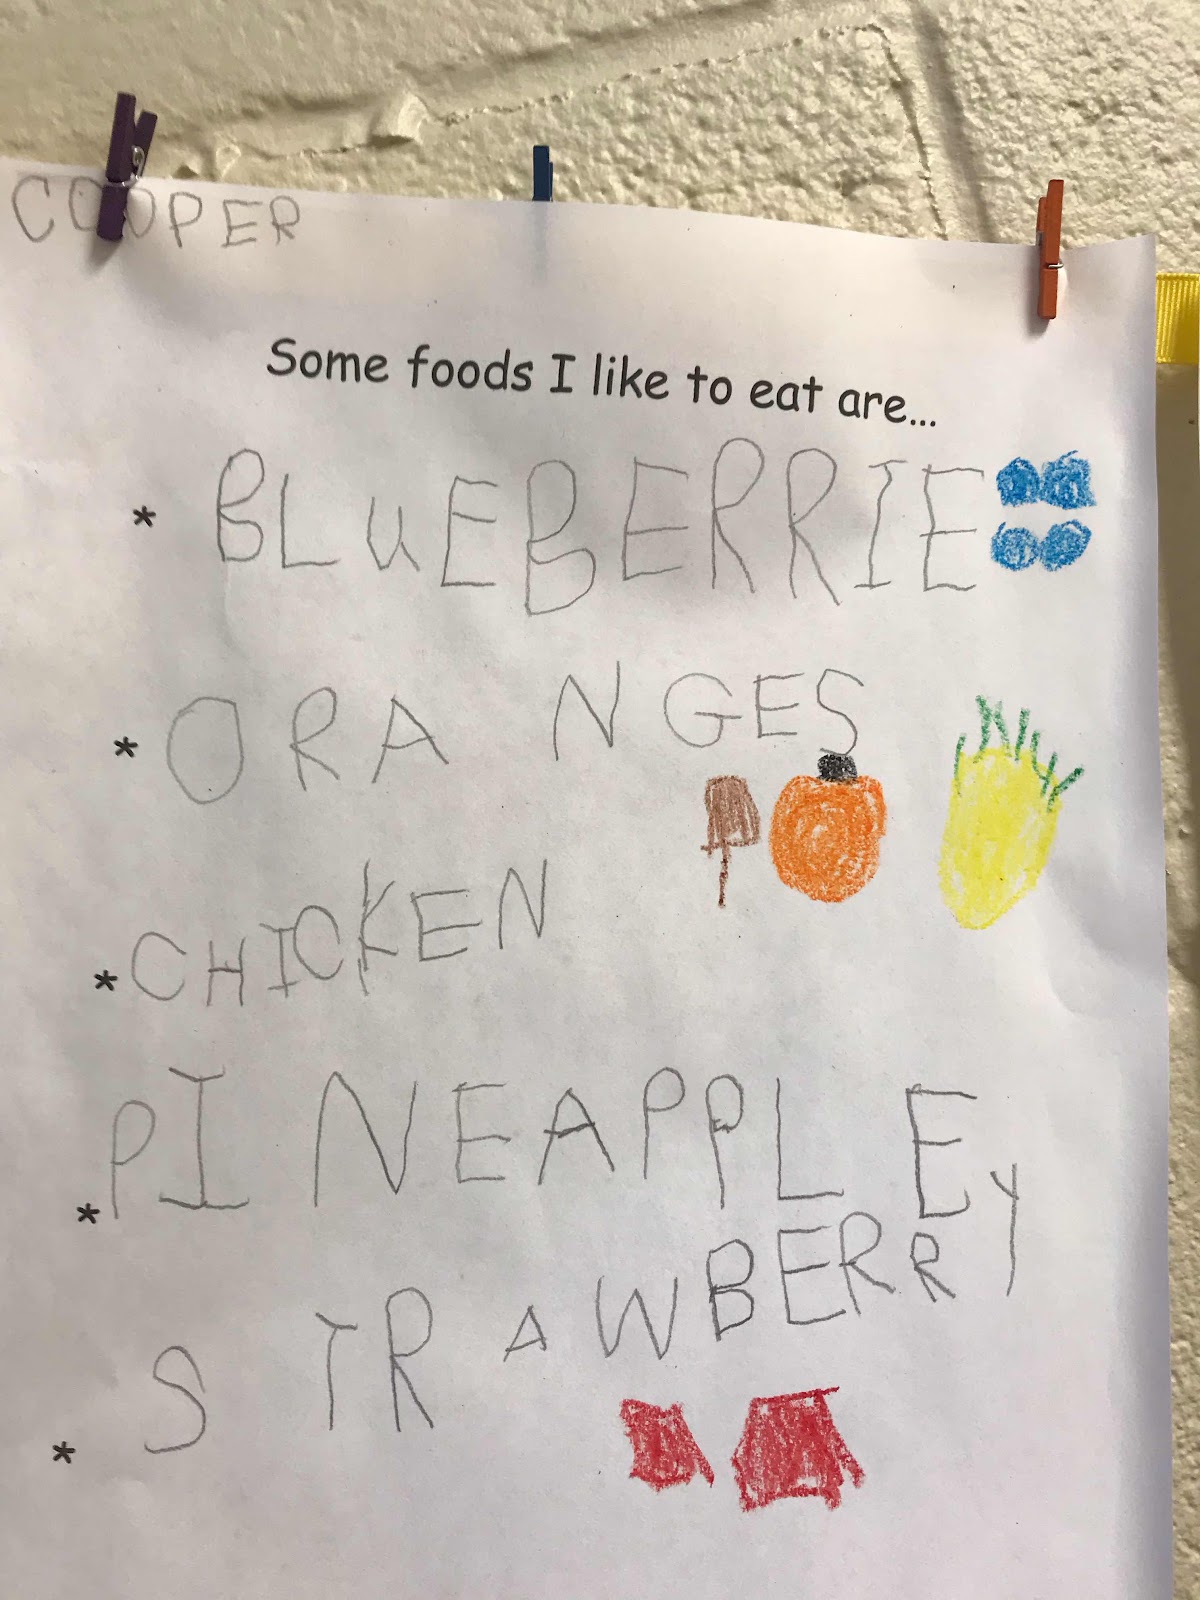 COOPER
Some foods I like to eat are...
* BLuEBERRIE
* ORANGES
* CHICKEN
* PINEAPPLE
* STRAWBERRY